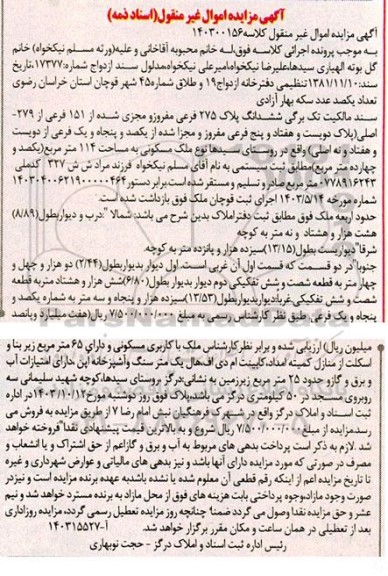 آگهی مزایده اموال غیر منقول(اسناد ذمه)
آگهی مزایده اموال غیر منقول کلاسه ۱۴۰۳۰۰۱۵۶
به موجب پرونده اجرائی کلاسه فوق،له خانم محبوبه آقاخانی و علیه(ورثه مسلم نیکخواه) خانم
گل بوته الهیاری سیدها،علیرضا نیکخواه،امیرعلی نیکخواه،مدلول سند ازدواج شماره:۱۷۳۷۷،تاریخ
سند:۱۳۸۱/۱۱/۱۰ تنظیمی دفترخانه ازدواج۱۹ و طلاق شماره۴۵ شهر قوچان استان خراسان رضوی
تعداد یکصد عدد سکه بهار آزادی
سند مالکیت تک برگی ششدانگ پلاک ۲۷۵ فرعی مفروزو مجزی شده از ۱۵۱ فرعی از ۲۷۹-
اصلی(پلاک دویست و هفتاد و پنج فرعی مفروز و مجزا شده از یکصد و پنجاه و یک فرعی از دویست
و هفتاد و نه اصلی) واقع در روستای سیدها نوع ملک مسکونی به مساحت ۱۱۴ متر مربع(یکصد و
چهارده متر مربع)مطابق ثبت سیستمی به نام آقای مسلم نیکخواه فرزند مراد ش ش ۳۲۷ کدملی
۰۷۷۸۹۱۶۲۴۳ متر مربع صادر و تسلیم و مستقر شده است.برابر دستور ۱۴۰۳۰۴۰۰۶۲۱۹۰۰۰۰۴۶۴
شماره مورخه ۱۴۰۳/۵/۱۴ اجرای ثبت قوچان ملک فوق بازداشت شده است.
حدود اربعه ملک فوق مطابق ثبت دفتراملاک بدین شرح می باشد: شمالا ":درب و دیواربطول(۸/۸۹)
هشت هزار و هشتاد و نه متر به کوچه
شرقا"دیواریست بطول(۱۳/۱۵)سیزده هزار و پانزده متر به کوچه
جنوبا"در دو قسمت که قسمت اول آن غربی است.اول دیوار بدیواربطول(۲/۴۴) دو هزار و چهل و
چهار متر به قطعه شصت و شش تفکیکی دوم دیوار بدیوار بطول(۶/۸۰)شش هزار و هشتاد متربه قطعه
شصت و شش تفکیکی غربا"دیواربدیواربطول(۱۳/۵۳)سیزده هزار و پنجاه و سه متر به شماره یکصد و
پنجاه و یک فرعی، طبق نظر کارشناس رسمی به مبلغ ۷/۵۰۰/۰۰۰/۰۰۰ ریال(هفت میلیارد و پانصد
میلیون ریال) ارزیابی شده و برابر نظر کارشناس ملک با کاربری مسکونی و دارای ۶۵ متر مربع زیر بنا و
اسکلت از منازل کمیته امداد،کابینت ام دی اف،هال یک متر سنگ وآشپزخانه اپن دارای امتیازات آب
و برق و گازو حدود ۲۵ متر مربع زیرزمین به نشانی:درگز روستای سیدها،کوچه شهید سلیمانی سه
روبروی مسجد در ۵۰ کیلومتری درگز می باشد،پلاک فوق روز دوشنبه مورخ۱۴۰۳/۱۰/۱۲ در اداره
ثبت اسناد و املاک درگز واقع در شهرک فرهنگیان نبش امام رضا ۷ از طریق مزایده به فروش می
رسد.مزایده از مبلغ ۷/۵۰۰/۰۰۰/۰۰۰ ریال شروع و به بالاترین قیمت پیشنهادی نقدا"فروخته خواهد
شد .لازم به ذکر است پرداخت بدهی های مربوط به آب و برق و گازاعم از حق اشتراک و یا انشعاب و
مصرف در صورتی که مورد مزایده دارای آنها باشد و نیز بدهی های مالیاتی و عوارض شهرداری و غیره
تا تاریخ مزایده اعم از اینکه رقم قطعی آن معلوم شده یا نشده باشدبه عهده برنده مزایده است و نیزدر
صورت وجود مازاد،وجوه پرداختی بابت هزینه های فوق از محل مازاد به برنده مسترد خواهد شد و نیم
عشر و حق مزایده نقدا وصول می گردد ضمنا چنانچه روز مزایده تعطیل رسمی گردد، مزایده روزاداری
بعد از تعطیلی در همان ساعت و مکان مقرر برگزار خواهد شد. آ-۱۴۰۳۱۵۵۲۷
رئیس اداره ثبت اسناد و املاک درگز - حجت نوبهاری